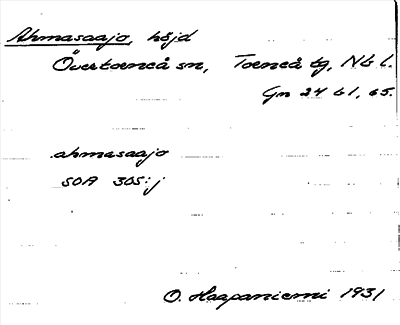 Ahmasaajo, höjd
Övertorneå sn, Torneå tg, Nb l.
Gn 24 b1, 65.
ahmasaajo
SOA 305:j
O. Haapaniemi 1931